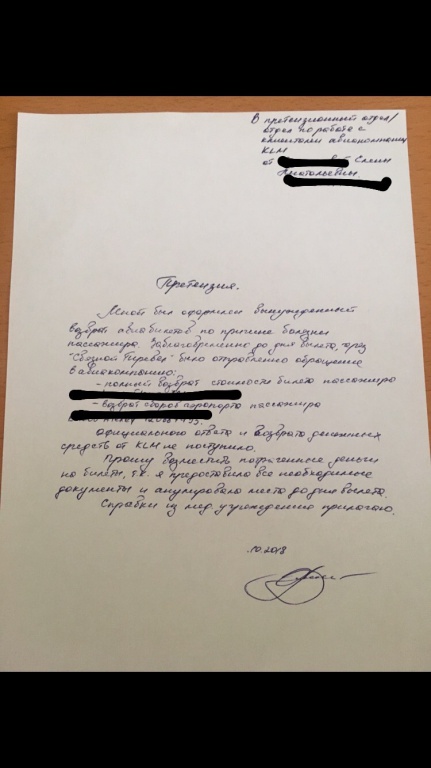 В претензионный отдел/
отдел по работе с
клиентами авиакомпании
KLM
от
Анатольевны
Претензия.
Мной был оформлен вынужденный
возврат авиабилетов по причине болезни
пассажира. Заблаговременно до дня вылета, через
"Связной Трэвел" было отправлено обращение
в авиакомпанию:
- полный возврат стоимости билета пассажира
- возврат сборов аэропорта пассажира
Официального ответа и возврата денежных
средств от KLM не поступило.
Прошу возместить потраченные деньги
на билеты, т.к. я предоставила все необходимые
документы и анулировала места до дня вылета.
Справки из мед. учреждения прилагаю.
.10.2018